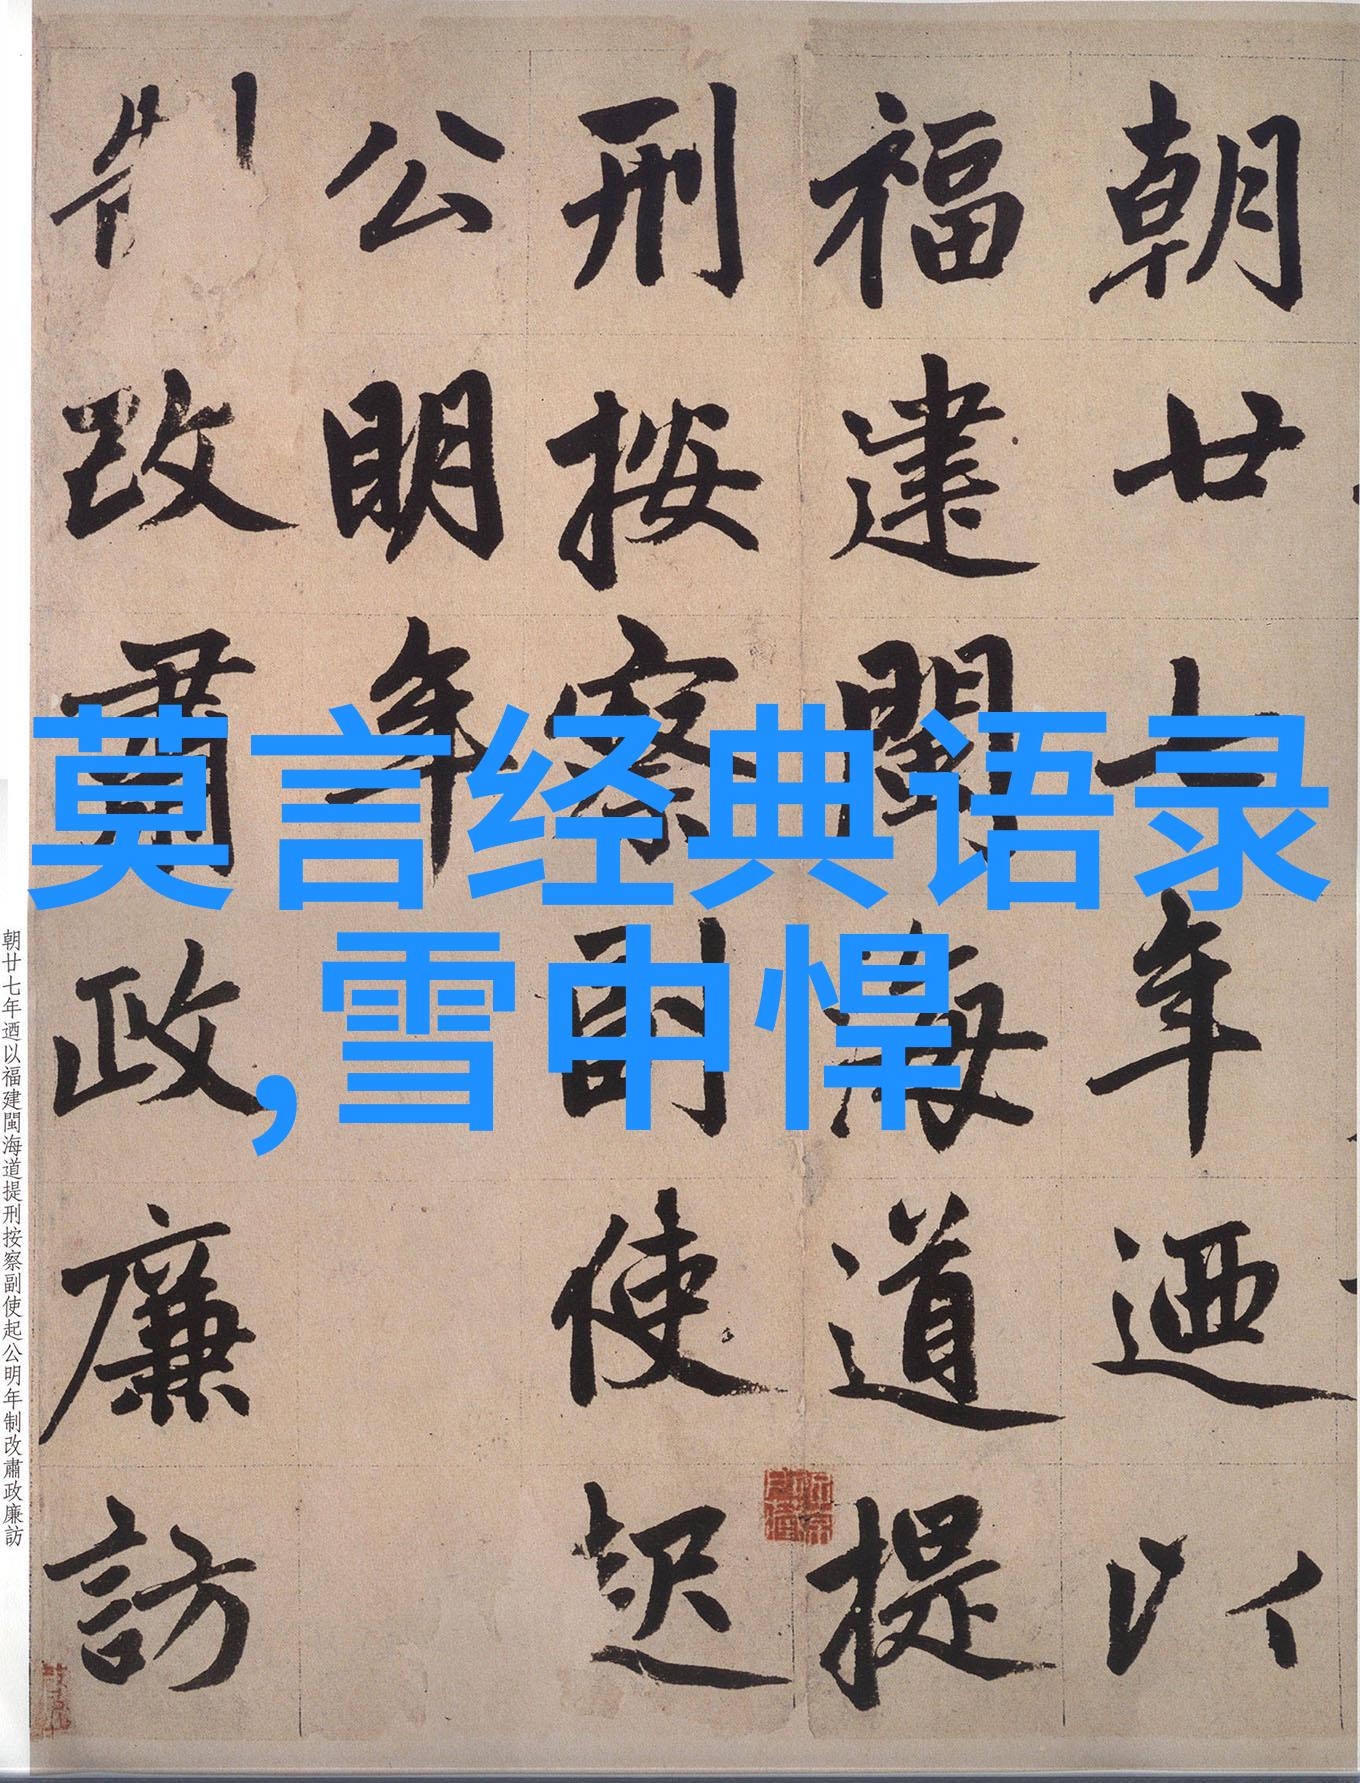 莫言经典语录
,雪中悍
朝廿七年迺以
福建閩海道提
刑按察副使起
公明年
制改肅政廉訪
朝廿七年迺以福建閩海道提刑按察副使起公明年制改肅政廉訪